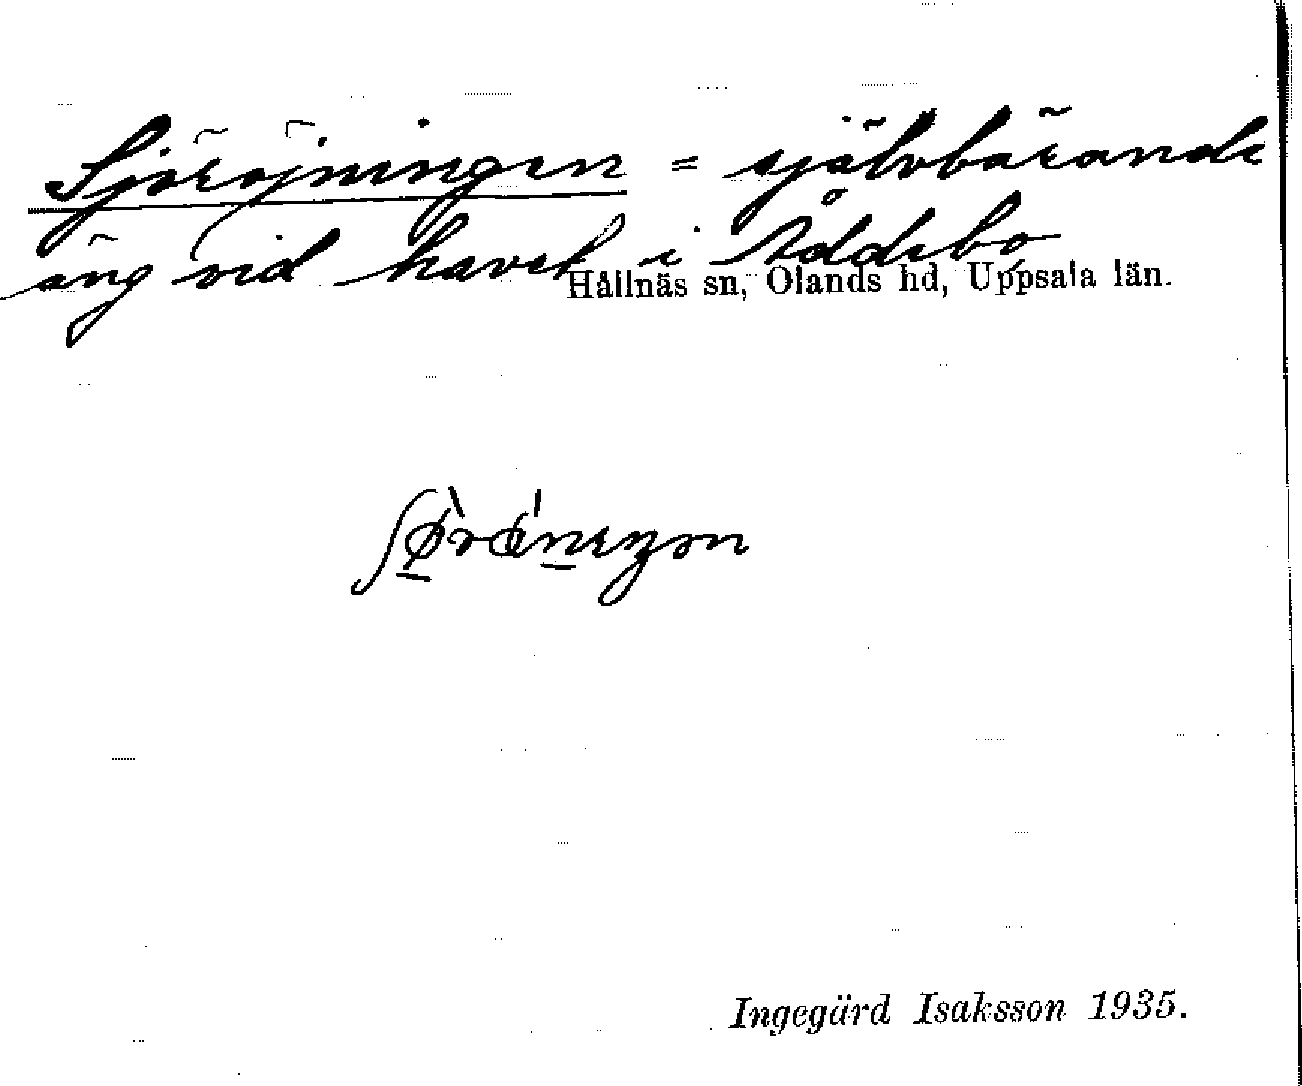 Sjöröjningen = självbärande
äng vid havet i Äddebo
Hållnäs sn, Olands hd, Uppsala län.
Ingegärd Isaksson 1935.